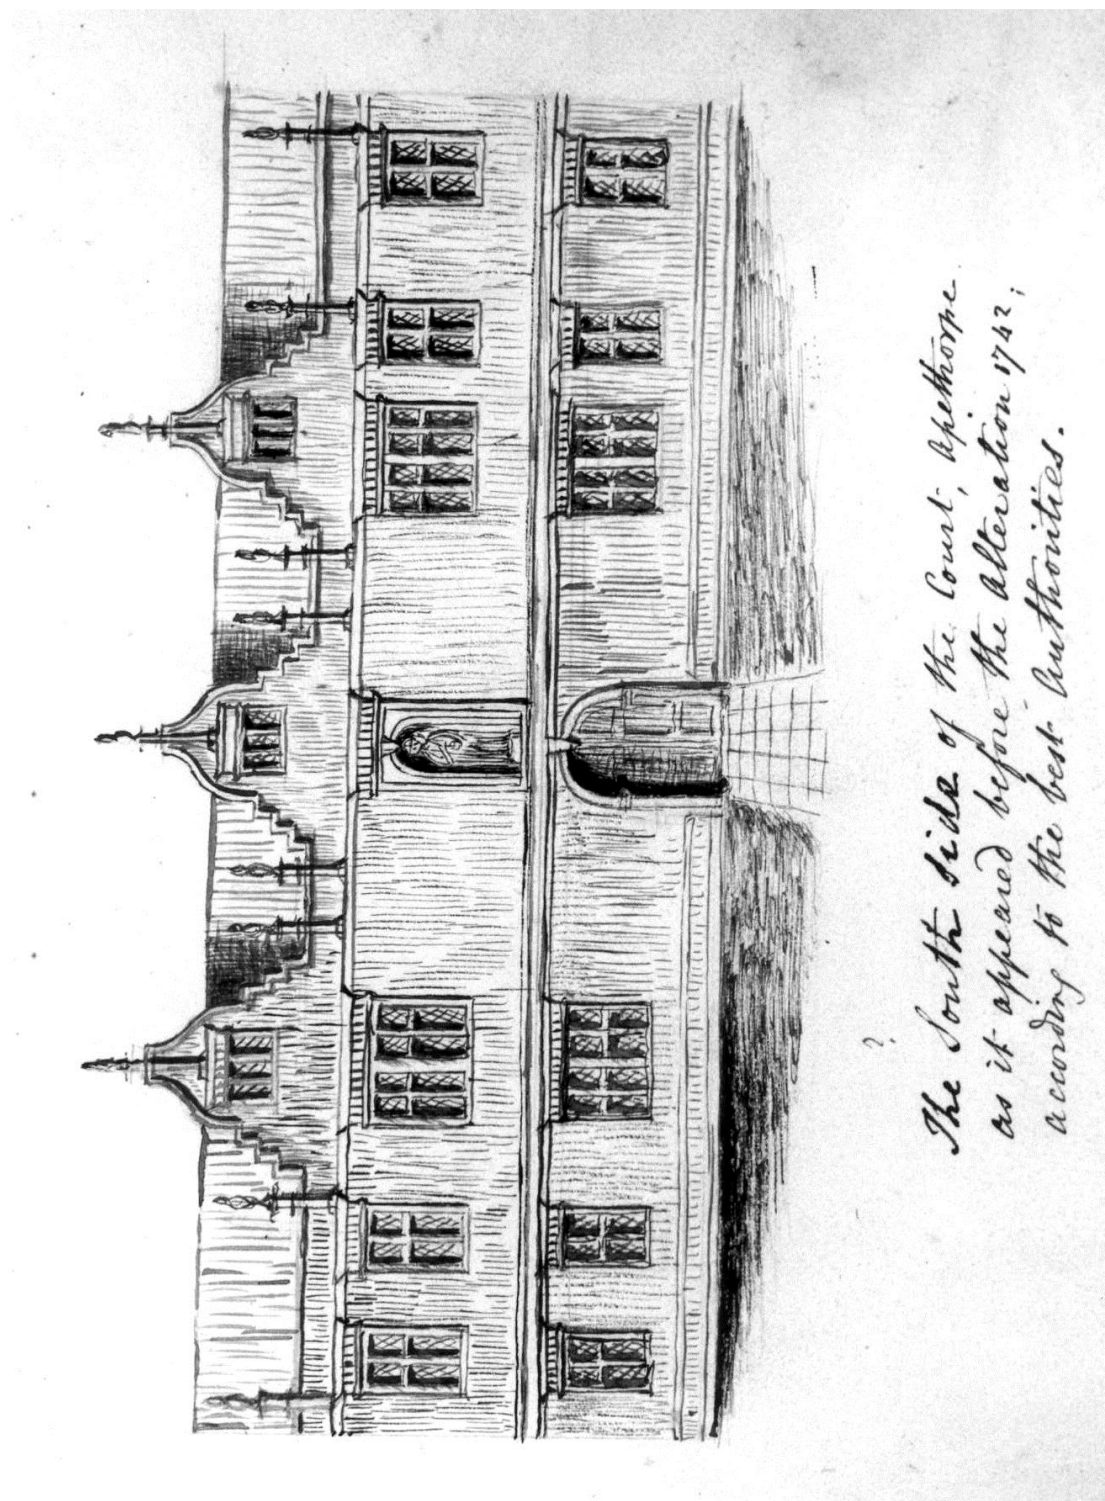 The South side of the Court, Apethorpe
as it appeared before the alteration 1742;
according to the best Authorities.
?